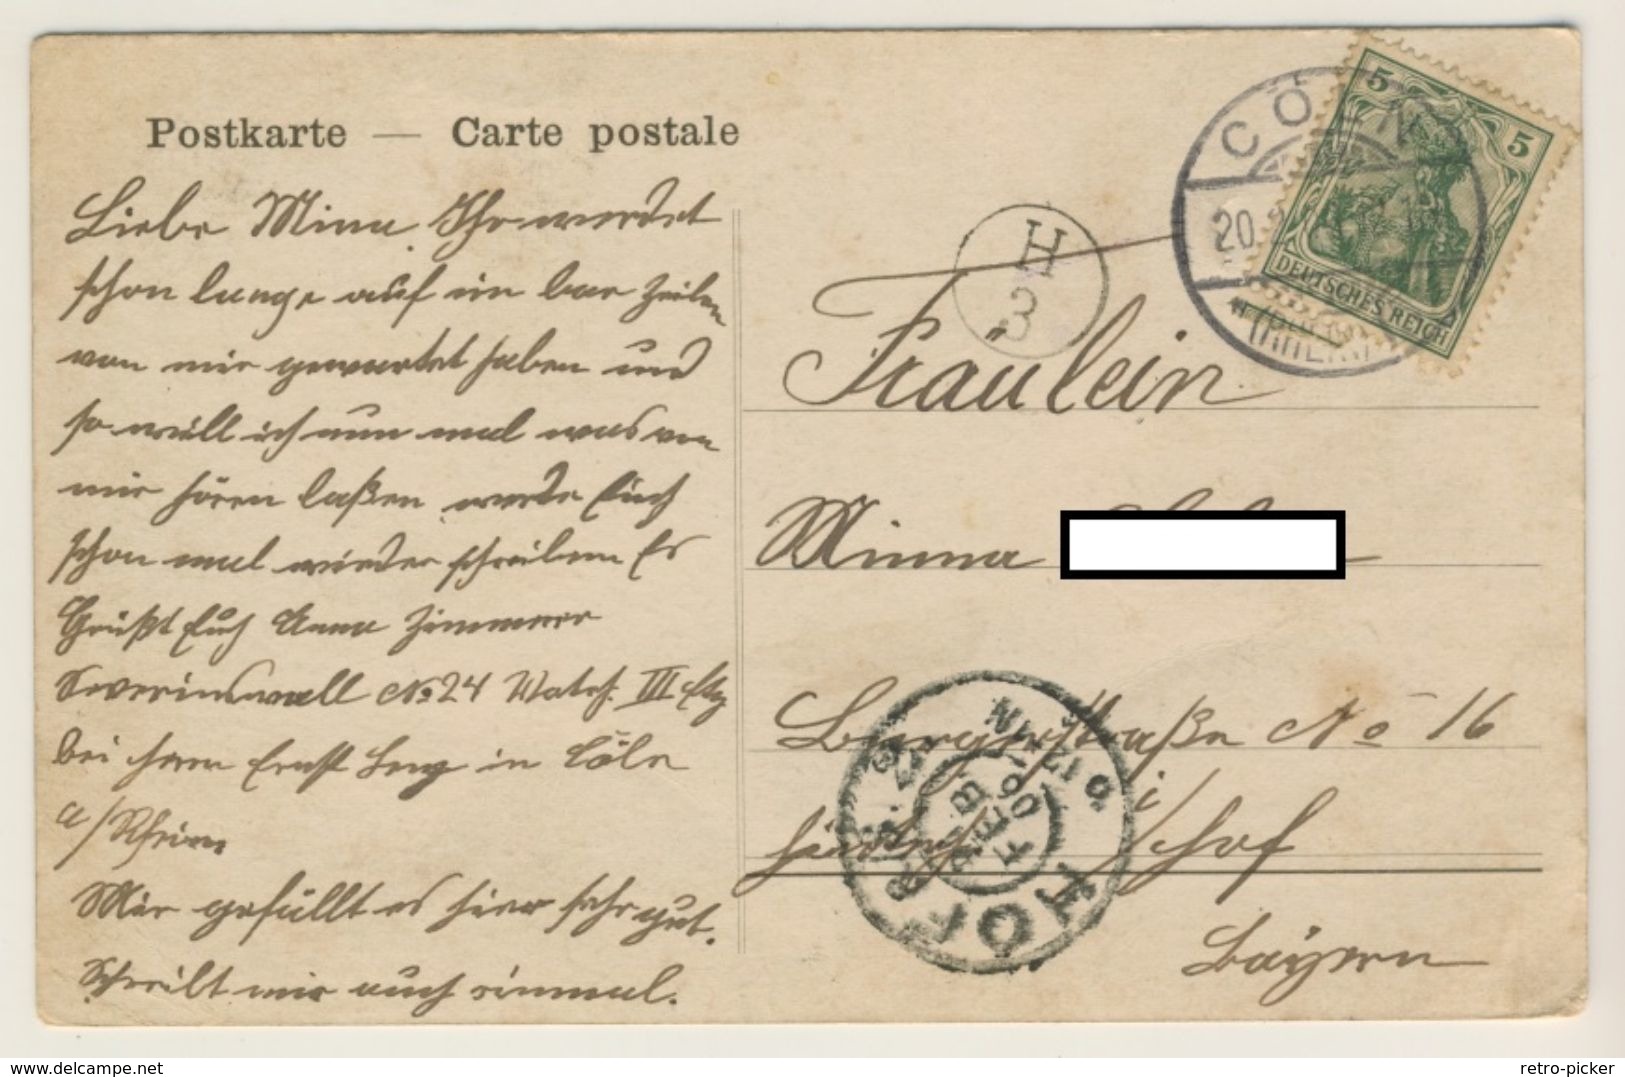 Postkarte — Carte postale
Liebe Mina. Ihr werdet
schon lange auf ein bar Zeilen
von mir gewartet haben und
so will ich nun mal was von
mir hören laßen werde Euch
schon mal wieder schreiben Es
Grüßt Euch Anna Zimmerer
Severinswall No 24 III Etg
bei Herrn Ernst in Cöln
a/Rhein
Mir gefällt es hier sehr gut.
Schreibt mir auch einmal.
CÖLN
20.
(RHEIN)
5 5
DEUTSCHES REICH
H
3
Fräulein
Minna
Bürgerstraße No 16
i/Hof
Bayern
HOF
www.delcampe.net
retro-picker